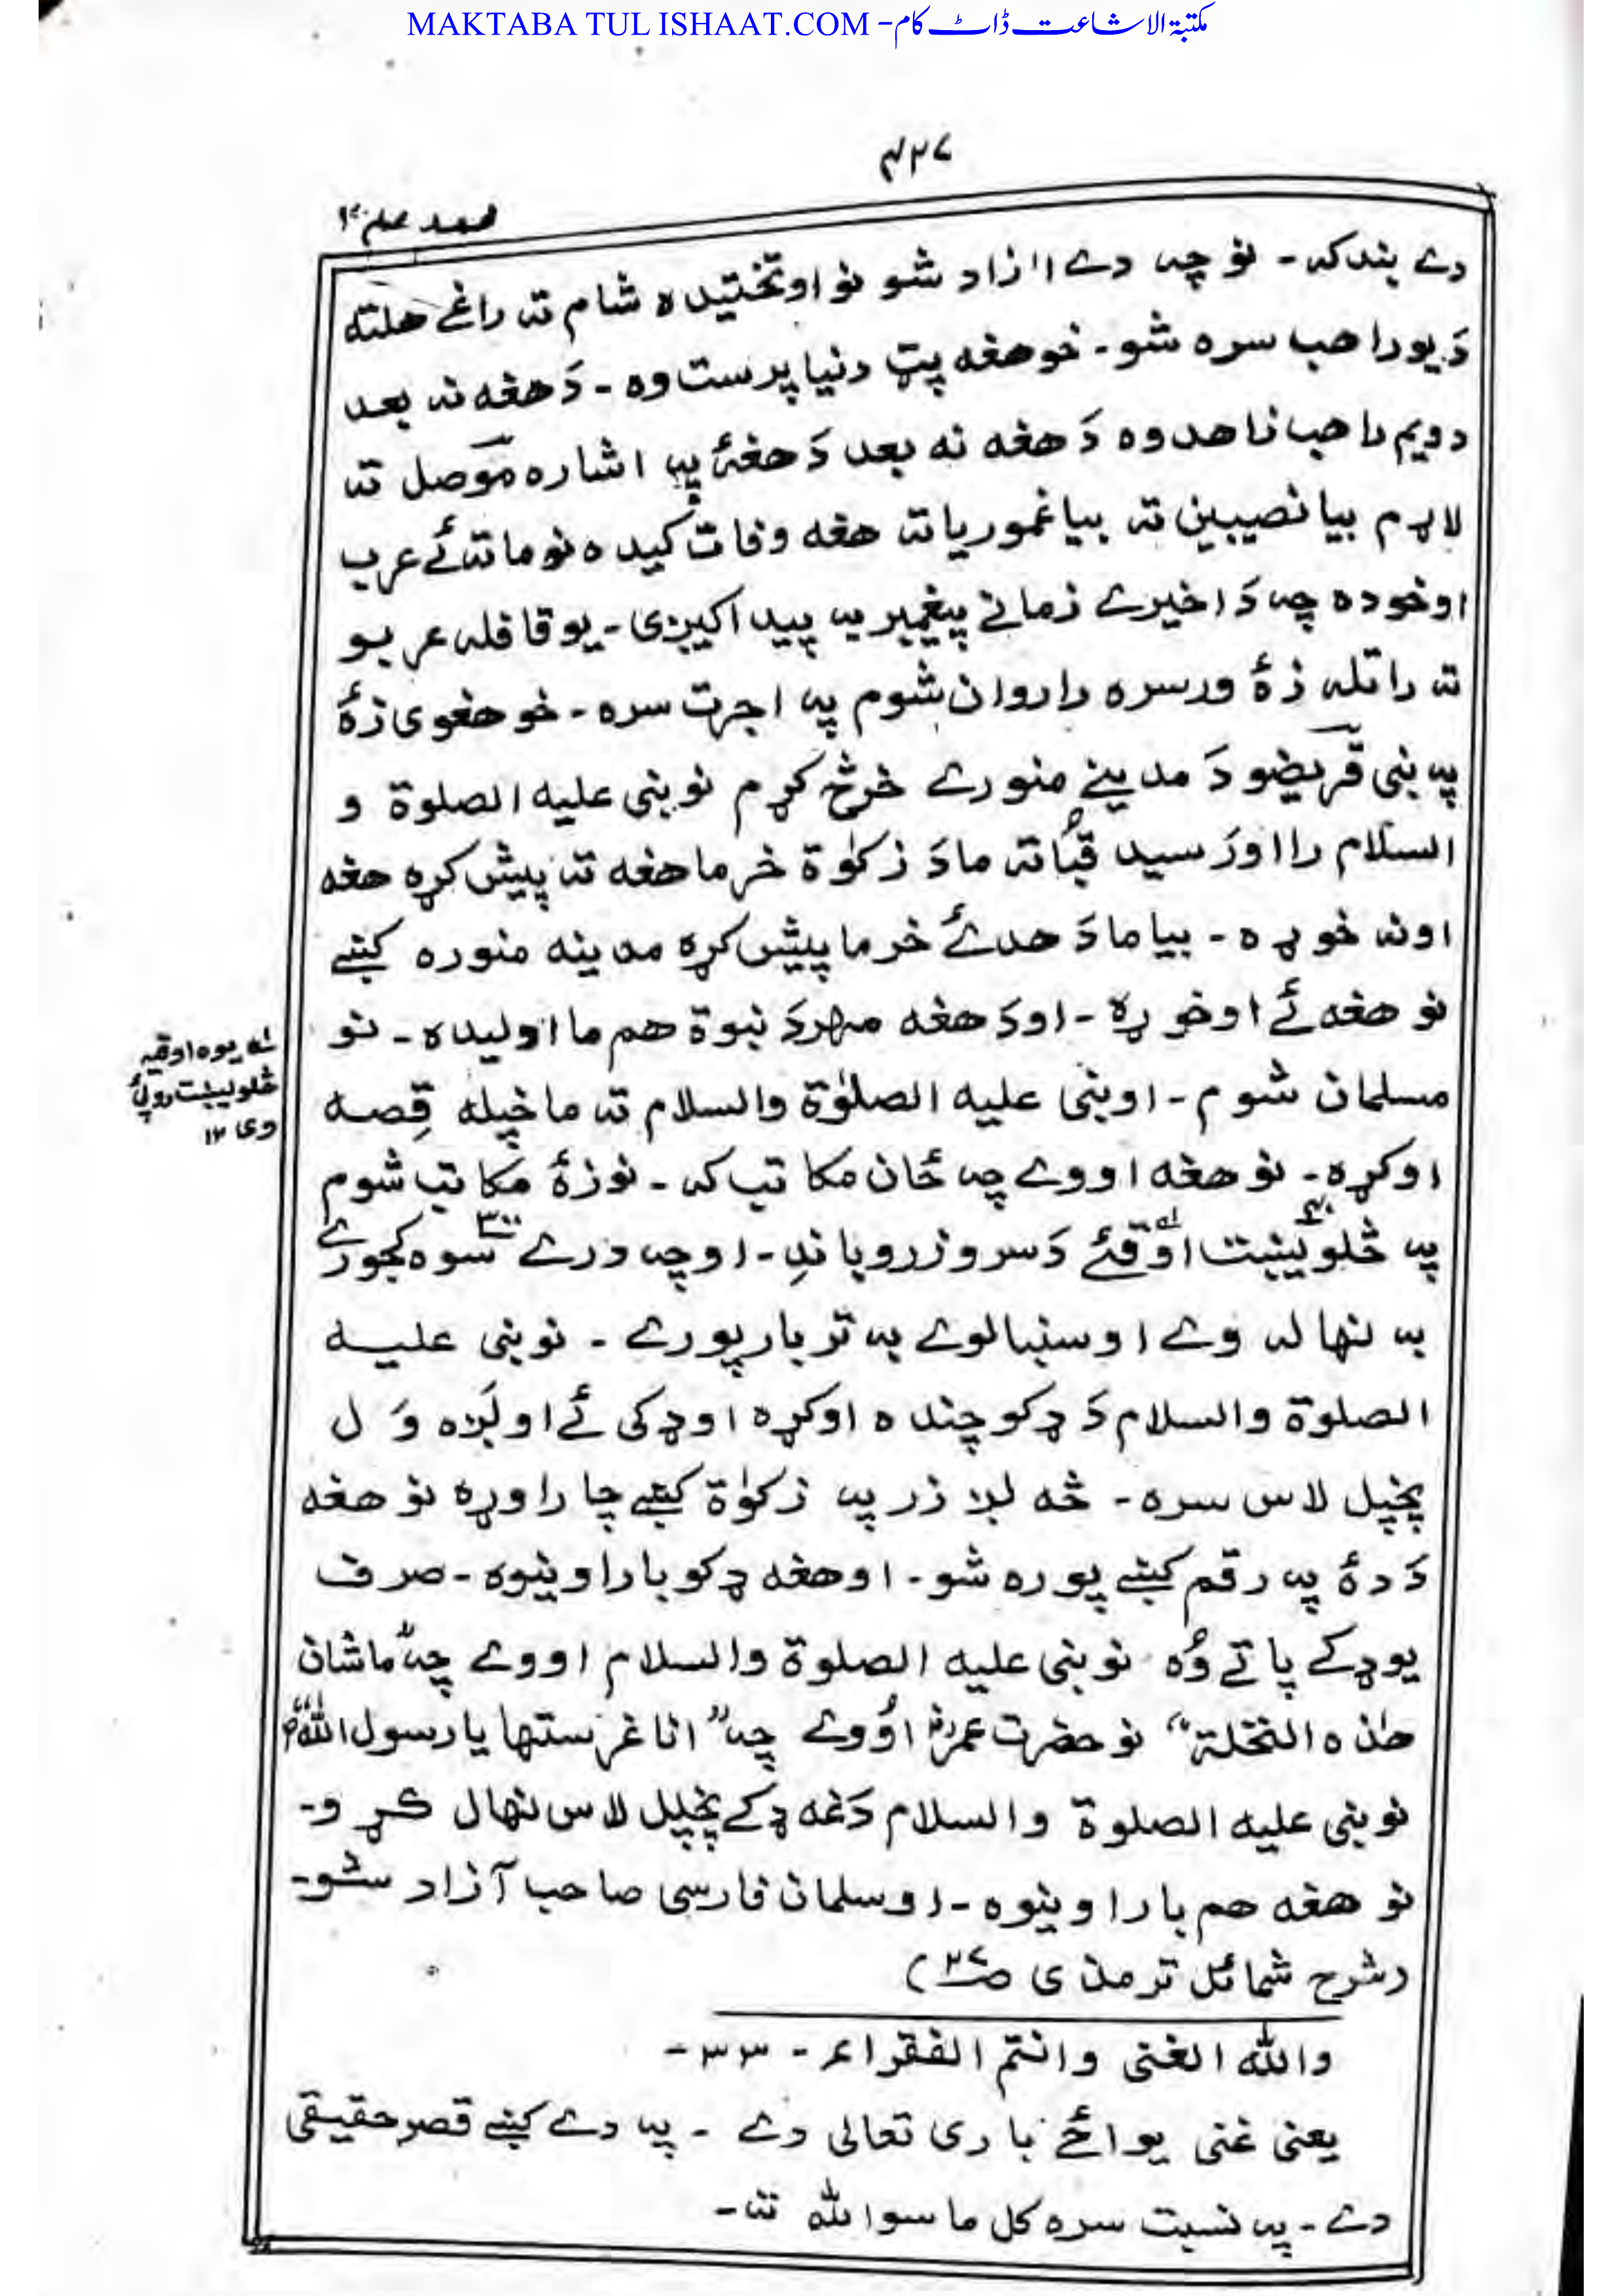 MAKTABA TUL ISHAAT.COM - مکتبۃ الاشاعت ڈاٹ کام
۴۲۷
محمد علم ۱۲
دے بند کہ - نو چہ دے اازاد شو نو اوتختیدہ شام تہ راغے ھلتہ
دَ یو راھب سرہ شو - خو ھغہ پټ دنیا پرست وہ - دَ ھغہ نہ بعد
دویم راھب زاھد وہ دَ ھغہ نہ بعد دَ ھغۂ پہ اشارہ موصل تہ
لاړم بیا نصیبین تہ بیا غموریا تہ ھغہ وفات کیدہ نو ما تہ ئے عرب
اوخودہ چہ دَ اخیرے زمانے پیغمبر بہ پیدا کیږی - یو قافلہ عربو
تہ راتلہ زۂ ورسرہ را روان شوم پہ اجرت سرہ - خو ھغوی زۂ
پہ بنی قریضو دَ مدینے منورے خرڅ کړم نو نبی علیہ الصلوۃ و
السلام را اورسید قُبا تہ ما دَ زکوٰۃ خرما ھغہ تہ پیش کړہ ھغہ
اونہ خوړہ - بیا ما دَ ھدئے خرما پیش کړہ مدینہ منورہ کښے
نو ھغہ ئے اوخوړہ - اودَ ھغہ مہر دَ نبوۃ ھم ما اولیدہ - نو
مسلمان شوم - او نبی علیہ الصلوٰۃ والسلام تہ ما خپلہ قِصہ
اوکړہ - نو ھغہ اووے چہ ځان مکاتب کہ - نو زۂ مکاتب شوم
پہ څلویښت ۴۰ اوقئے لہ دَ سرو زرو باندِ - او چہ درے سوہ ۳۰۰ کجورے
بہ نہالہ وے او سنبالوے بہ تر بار پورے - نو نبی علیہ
الصلوۃ والسلام دَ ډکو چندہ اوکړہ او ډکی ئے اولږہ وَ ل
پخپل لاس سرہ - څہ لږ زر پہ زکوٰۃ کښے چا راوړہ نو ھغہ
دَ دۂ پہ رقم کښے پورہ شو - او ھغہ ډکو بار اونیوہ - صرف
یو ډکے پاتے وُہ نو نبی علیہ الصلوۃ والسلام اووے چہ "ماشان
ھٰذہ النخلۃ" نو حضرت عمرؓ اوُوے چہ "انا غرستھا یا رسول اللہؐ"
نو نبی علیہ الصلوۃ والسلام دَغہ ډکے پخپل لاس نہال کړو -
نو ھغہ ھم بار اونیوہ - او سلمان فارسی صاحب آزاد شو -
(شرح شمائل ترمذی ص۳۷)
واللہ الغنی وانتم الفقراء - ۳۳ -
یعنی غنی یوائے باری تعالی دے - پہ دے کښے قصر حقیقی
دے - پہ نسبت سرہ کل ما سوا للہ تہ -
لہ یوہ اوقیہ
څلویښت روپئ
وی ۱۲